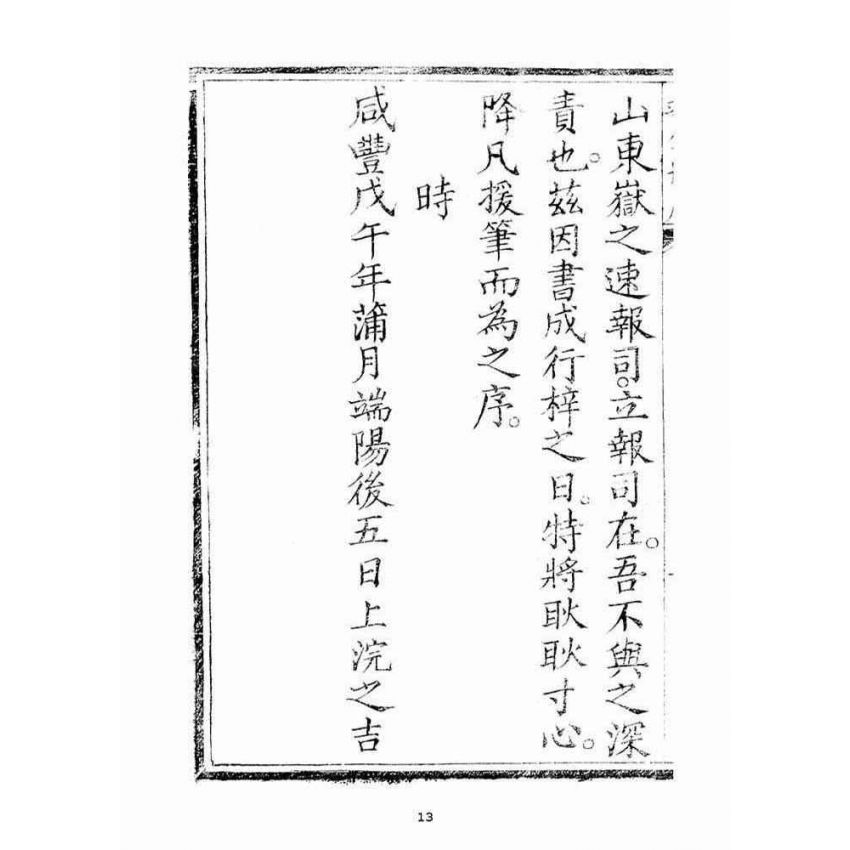 山東嶽之速報司。立報司在。吾不與之深
責也。茲因書成行梓之日。特將耿耿寸心。
降凡援筆而為之序。
時
咸豐戊午年蒲月端陽後五日上浣之吉
13